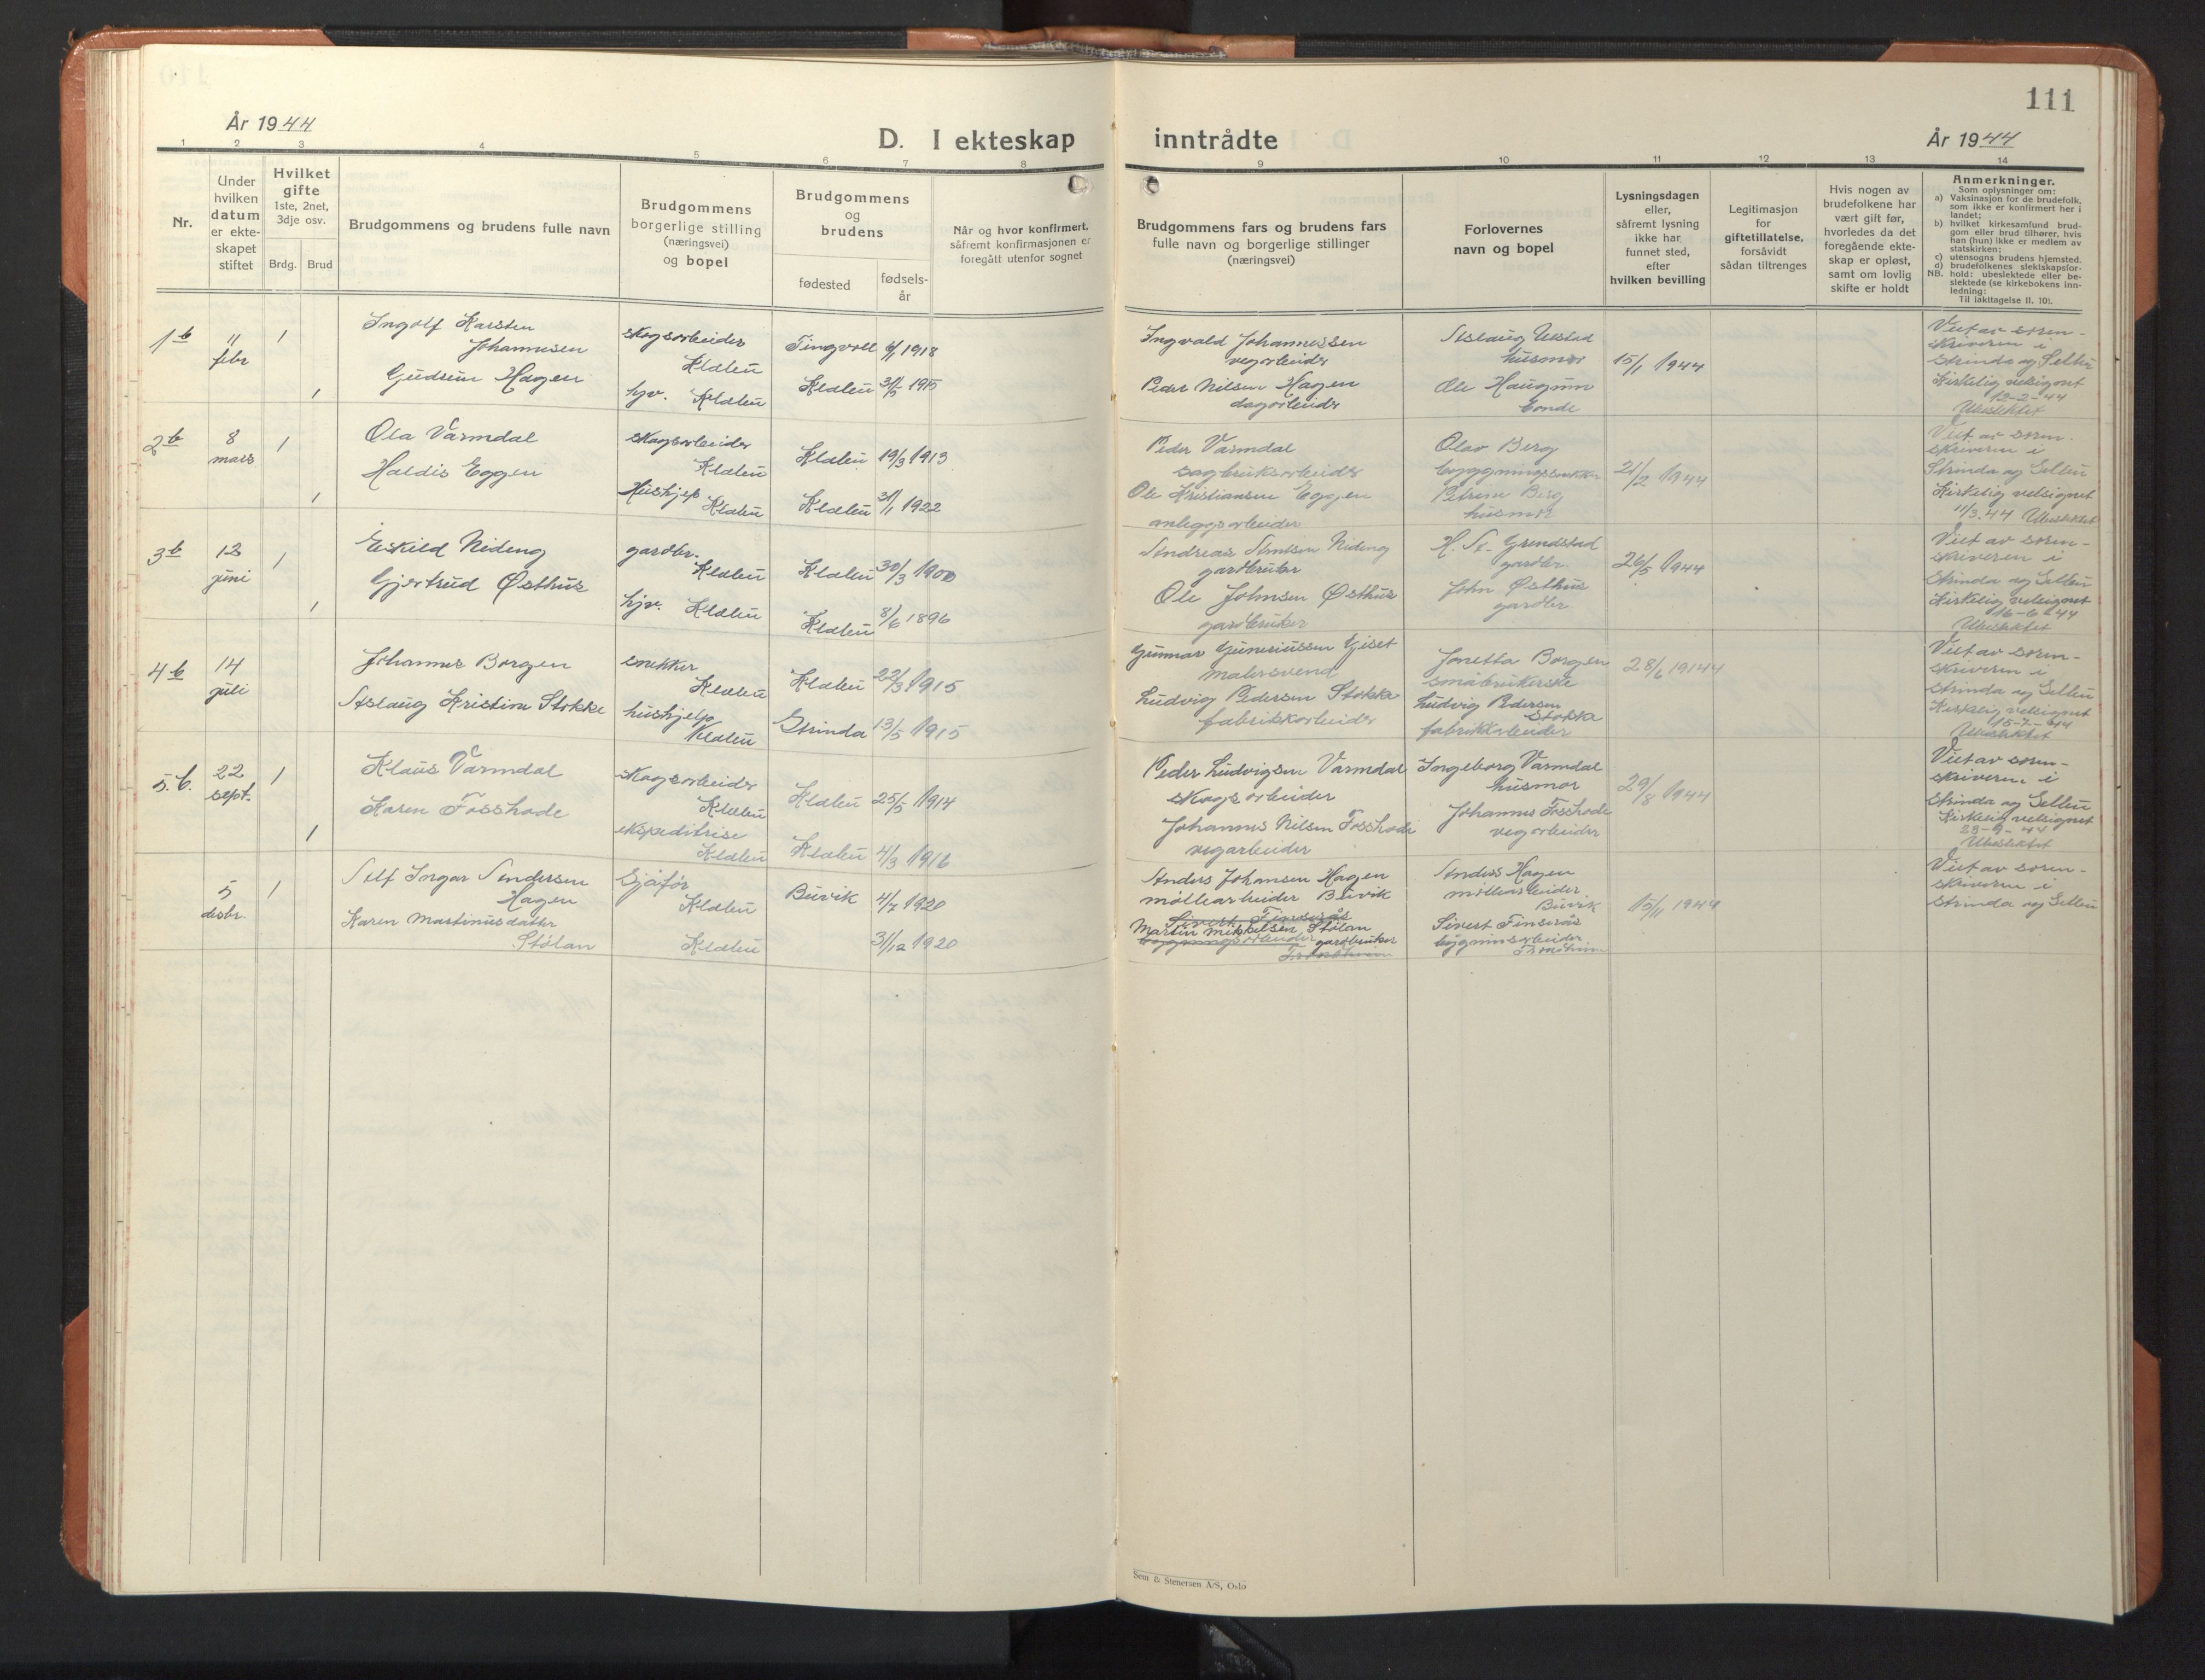 111
År 1944
D. I ekteskap inntrådte
År 1944
1 2 3 4 5 6 7 8 9 10 11 12 13 14
Nr.
Under hvilken datum er ekte-skapet stiftet
Hvilket gifte
1ste, 2net, 3dje osv.
Brdg. Brud
Brudgommens og brudens fulle navn
Brudgommens borgerlige stilling (næringsvei) og bopel
Brudgommens og brudens
fødested
fødsels-år
Når og hvor konfirmert,
såfremt konfirmasjonen er
foregått utenfor sognet
Brudgommens fars og brudens fars
fulle navn og borgerlige stillinger
(næringsvei)
Forlovernes
navn og bopel
Lysningsdagen
eller,
såfremt lysning
ikke har
funnet sted,
efter
hvilken bevilling
Legitimasjon
for
giftetillatelse,
forsåvidt
sådan tiltrenges
Hvis nogen av
brudefolkene har
vært gift før,
hvorledes da det
foregående ekte-
skap er opløst,
samt om lovlig
skifte er holdt
Anmerkninger.
Som oplysninger om:
a) Vaksinasjon for de brudefolk,
som ikke er konfirmert her i
landet;
b) hvilket kirkesamfund brud-
gom eller brud tilhører, hvis
han (hun) ikke er medlem av
statskirken;
c) utensogns brudens hjemsted.
d) brudefolkenes slektskapsfor-
NB. hold: ubeslektede eller be-
slektede (se kirkebokens inn-
ledning:
Til iakttagelse II. 10).
1 b 11 febr 1 1
Ingolf Karsten
Johannesen
Gudrun Hagen
skogsarbeider
Klæbu
hjv. Klæbu
Tingvoll 1918
Klæbu 1915
Ingvald Johannessen
vegarbeider
Peder Nilsen Hagen
dagarbeider
Aslaug Ulstad
husmor
Ole Haugum
bonde
15/1 1944
Viet av soren-
skriveren i
Strinda og Selbu
Kirkelig velsignet
12-2-44
Ubeslektet
2 b 8 mars 1 1
Ola Varmdal
Haldis Eggen
skogsarbeider
Klæbu
Hushjelp
Klæbu
Klæbu 19/3 1913
Klæbu 31/1 1922
Peder Varmdal
sagbruksarbeider
Ole Kristiansen Eggen
anleggsarbeider
Olav Berg
bygningssnekker
Petrine Berg
husmor
21/2 1944
Viet av soren-
skriveren i
Strinda og Selbu
Kirkelig velsignet
11/3.44 Ubeslektet
3 b juni 1 1
Eskild Nideng
Gjertrud Østhus
gardbr.
Klæbu
hjv. Klæbu
Klæbu 30/3 1900
Klæbu 8/6 1896
Andreas Arntsen Nideng
gardbruker
Ole Johnsen Østhus
gardbruker
H. A. Grendstad
gardbr.
John Østhus
gardbr
26/5 1944
Viet av soren-
skriveren i
Strinda og Selbu
Kirkelig velsignet
16-6-44
Ubeslektet
4 b 14 juli
Johannes Borgen
Aslaug Kristine Stokke
snekker
Klæbu
hushjelp
Klæbu
Klæbu 22/3 1915
Strinda 13/5 1915
Gunnar Guneriussen Gjset
malersvend
Ludvig Pedersen Stokke
fabrikkarbeider
Jonetta Borgen
småbrukerske
Ludvig Pedersen
Stokke
fabrikkarbeider
28/6 1944
Viet av soren-
skriveren i
Strinda og Selbu
Kirkelig velsignet
15-7-44
Ubeslektet
5. b. 22 sept. 1 1
Klaus Varmdal
Karen Fosshode
skogsarbeider
Klæbu
ekspeditrise
Klæbu
Klæbu 25/5 1914
Klæbu 4/3 1916
Peder Ludvigsen Varmdal
skogsarbeider
Johannes Nilsen Fosshode
vegarbeider
Ingeborg Varmdal
husmor
Johannes Fosshode
vegarbeider
29/8 1944
Viet av soren-
skriveren i
Strinda og Selbu
Kirkelig velsignet
23-9-44
Ubeslektet
5 desbr. 1
Alf Ingar Andersen
Hagen
Karen Martinusdatter
Stølan
Sjåfør
Klæbu
Klæbu
Buvik 4/7 1920
31/12 1920
Anders Johansen Hagen
møllearbeider Buvik
Sivert Finserås
Martin Mikkelsen Stølan
bygningsarbeider gardbruker
Trondheim
Anders Hagen
møllearbeider
Buvik
Sivert Finserås
bygninsarbeider
Trondheim
15/11 1944
Viet av soren-
skriveren i
Strinda og Selbu
Sem & Stenersen A/S, Oslo